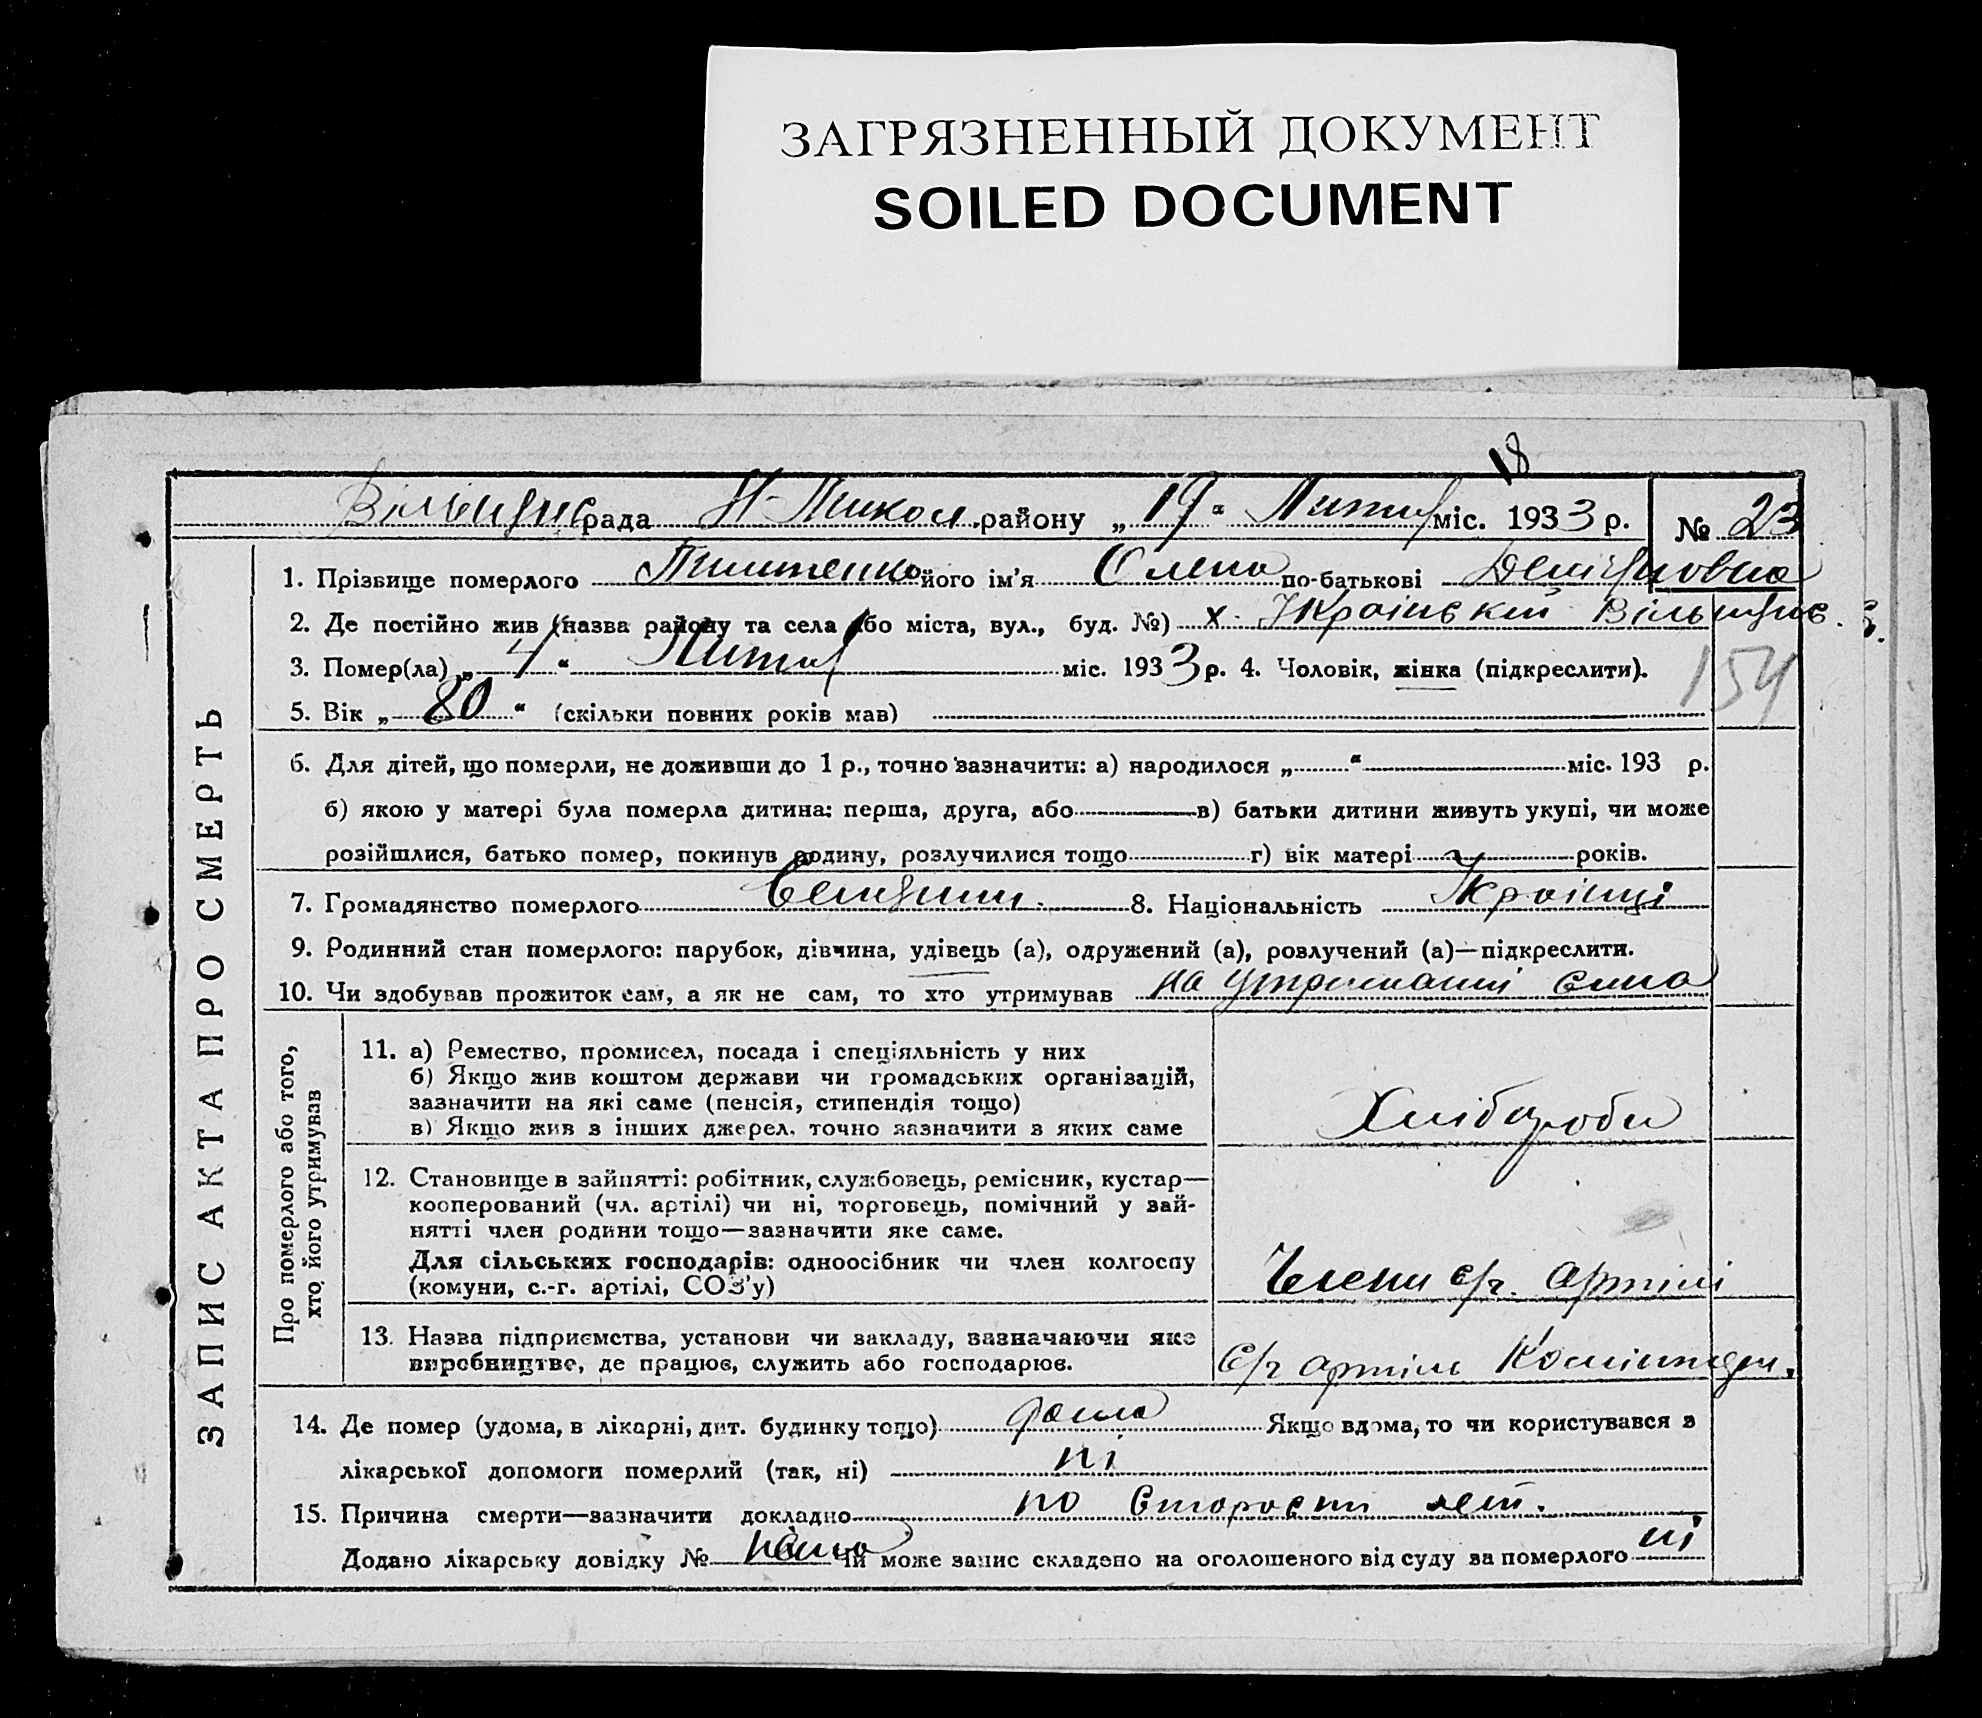 ЗАГРЯЗНЕННЫЙ ДОКУМЕНТ
SOILED DOCUMENT
18
рада Н-Микол. району „19“ Лютий міс. 1933 р. № 23
ЗАПИС АКТА ПРО СМЕРТЬ
1. Прізвище померлого його ім'я Олена по-батькові
2. Де постійно жив (назва району та села або міста, вул., буд. №) х. Український
3. Помер(ла) „4“ Лютий міс. 1933 р. 4. Чоловік, жінка (підкреслити).
154
5. Вік „80“ (скільки повних років мав)
6. Для дітей, що померли, не доживши до 1 р., точно зазначити: а) народилося „ “ міс. 193 р.
б) якою у матері була померла дитина: перша, друга, або в) батьки дитини живуть укупі, чи може
розійшлися, батько помер, покинув родину, розлучилися тощо г) вік матері років.
7. Громадянство померлого 8. Національність Українці
9. Родинний стан померлого: парубок, дівчина, удівець (а), одружений (а), розлучений (а)—підкреслити.
10. Чи здобував прожиток сам, а як не сам, то хто утримував на утриманні сина
Про померлого або того,
хто його утримував
11. а) Ремество, промисел, посада і спеціяльність у них
б) Якщо жив коштом держави чи громадських організацій,
зазначити на які саме (пенсія, стипендія тощо)
в) Якщо жив з інших джерел, точно зазначити з яких саме
Хлібороби
12. Становище в зайнятті: робітник, службовець, ремісник, кустар—
кооперований (чл. артілі) чи ні, торговець, помічний у зай-
нятті член родини тощо—зазначити яке саме.
Для сільських господарів: одноосібник чи член колгоспу
(комуни, с.-г. артілі, СОЗ'у)
Члени с/г. артілі
13. Назва підприємства, установи чи закладу, зазначаючи яке
виробництво, де працює, служить або господарює.
С/г артіль Комінтерн.
14. Де помер (удома, в лікарні, дит. будинку тощо) дома Якщо вдома, то чи користувався з
лікарської допомоги померлий (так, ні) ні
15. Причина смерти—зазначити докладно по старости лет.
Додано лікарську довідку № нема Чи може запис складено на оголошеного від суду за померлого ні